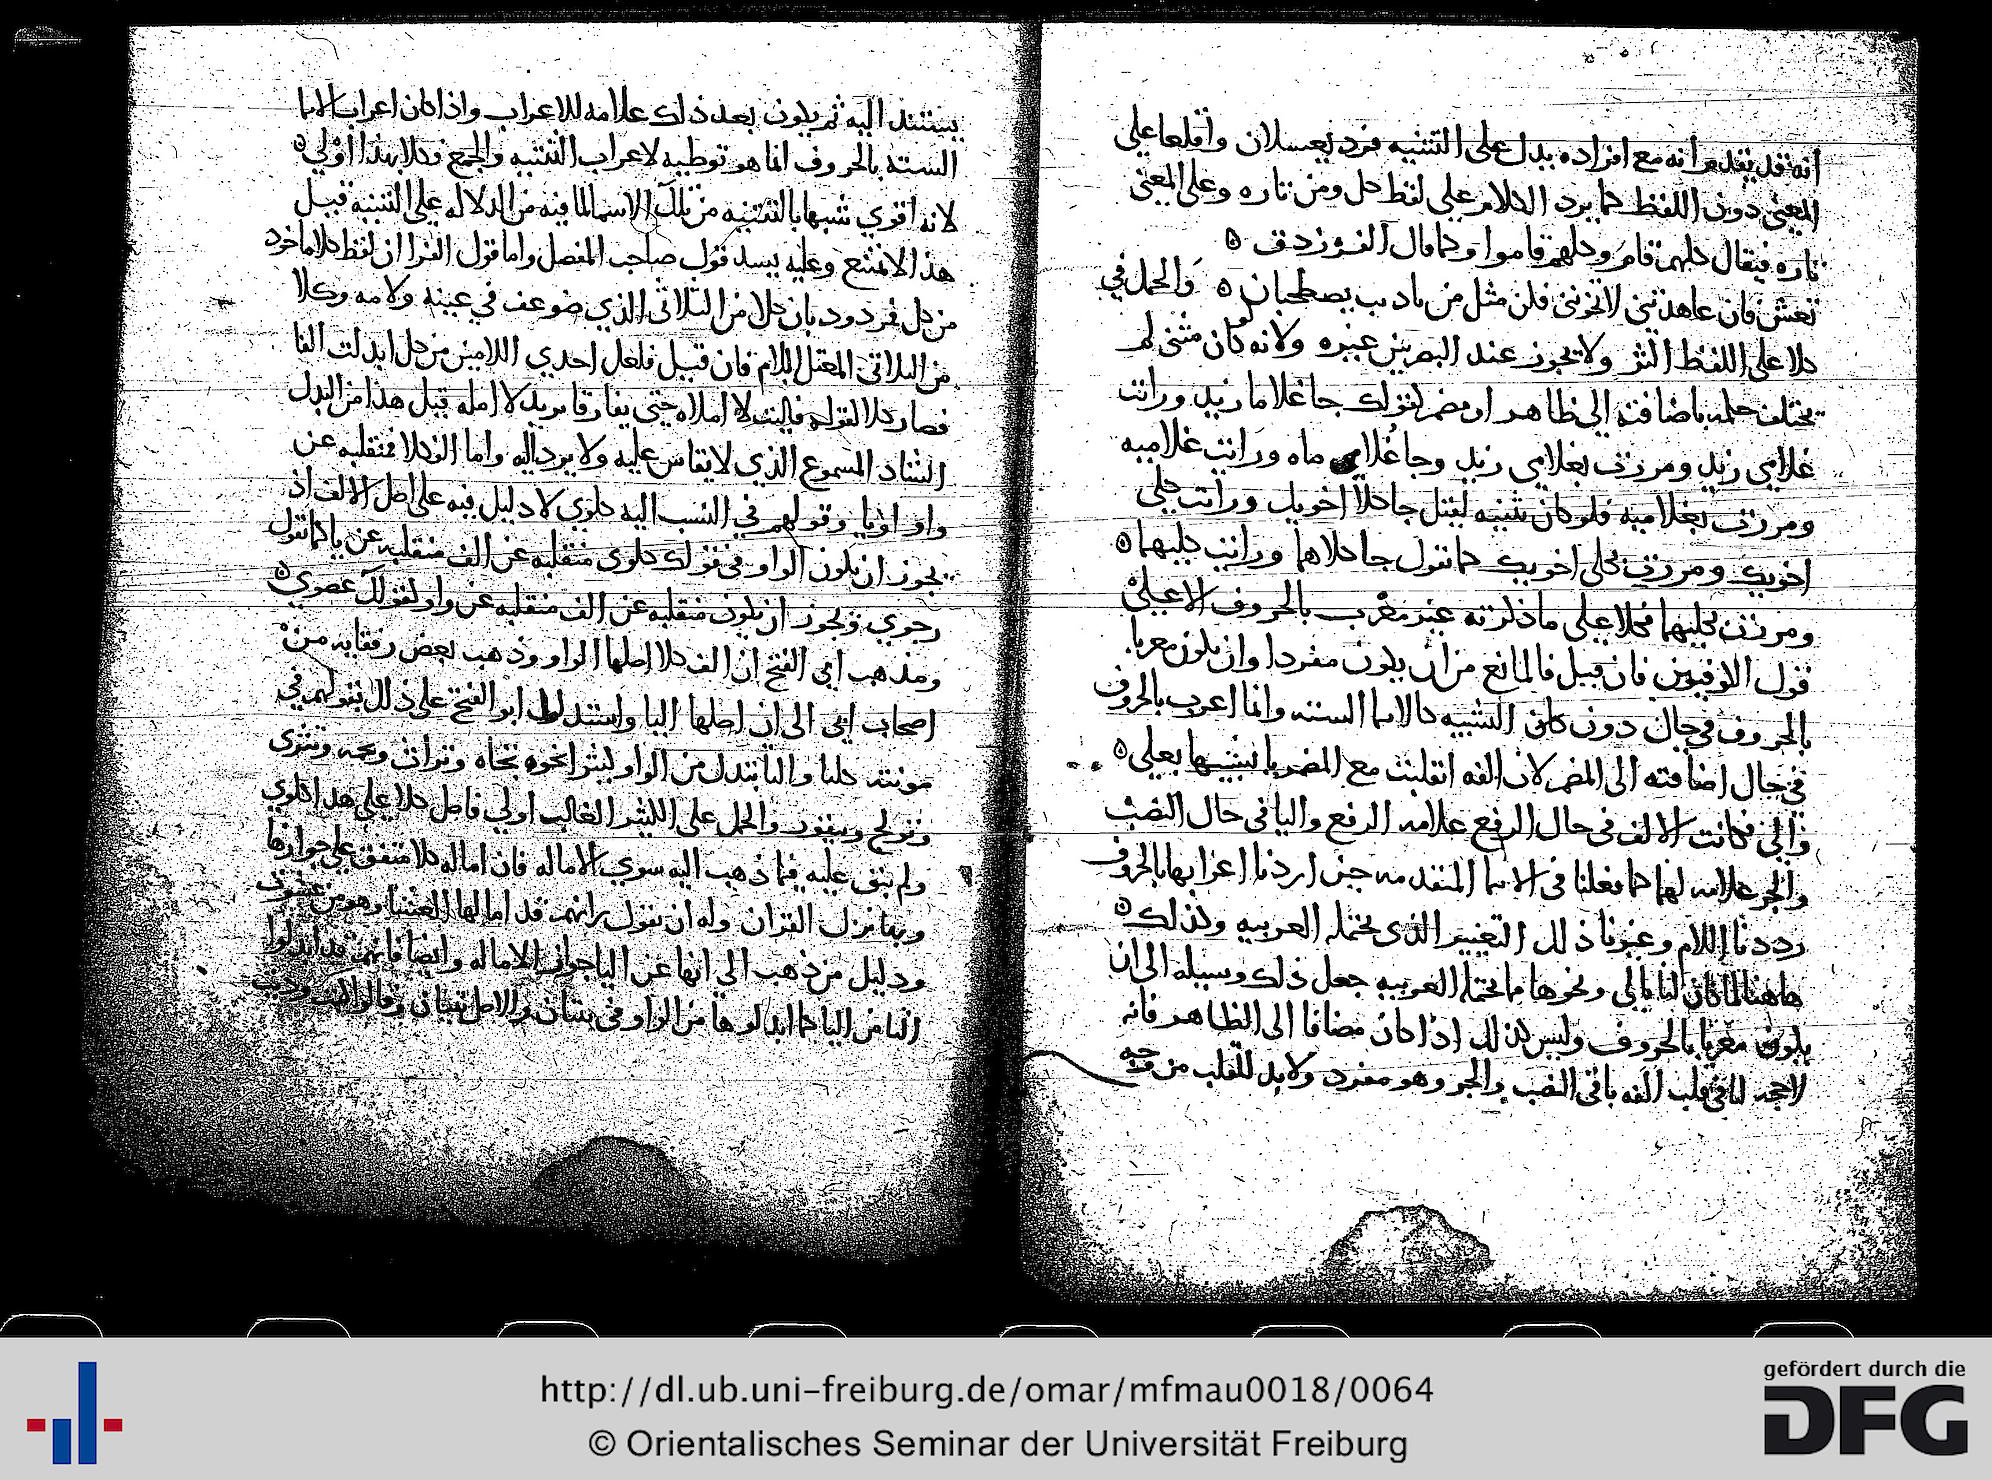 أنه قد تقدم أنه مع افراده يدل على التثنيه فرد يعسلان وأقلعا علي
المعني دون اللفظ كما يرد الكلام علي لفظ كل ومن تاره وعلى المعني
تاره فيقال كلهم قام وكلهم قاموا وكما قال الفرزدق
تعش فان عاهدتني لا تخونني فلن مثل من يا ديب يصطحبان والحمل في
كلا على اللفظ اكثر ولا يجوز عند البصريين غيره ولانه لو كان مثنى لم
يختلف حكمه باضافته الي ظاهر او مضمر كقولك جا غلاما زيد ورات
غلامي زيد ومررت بغلامي زيد وجا غلاماه ورايت غلاميه
ومررت بغلاميه فلو كان تثنيه لقيل جا كلا اخويك ورايت كلي
اخويك ومررت بكلي اخويك كما تقول جا كلاهما ورايت كليهما
ومررت بكليهما فكلا علي ما ذكرته غير معرب بالحروف الا علي
قول الكوفيين فان قيل فما المانع من ان يكون مفردا وان يكون معربا
بالحروف في حال دون التثنيه كالاسما السته وانما اعرب بالحروف
في حال اضافته الى المضمر لان الفه انقلبت مع المضمر يا تشبيها بعلي
والي فكانت الالف في حال الرفع علامه الرفع واليا في حال النصب
والجر علامه لهما كما فعلنا في الاسما المتقدمه حين اردنا اعرابها بالحروف
رددنا اللام وغيرنا ذلك التغيير الذى تحتمله العربيه وكذلك
هاهنا لما كان لنا يا الي ونحوها مما تحتمله العربيه جعل ذلك وسيله الى ان
يكون معربا بالحروف وليس كذلك اذا كان مضافا الى الظاهر فانه
لا حجه لنا في قلب الفه يا في النصب والجر وهو مفرد ولا بد للقلب من وجه
يستند اليه ثم يكون بعد ذلك علامه للاعراب واذا كان اعراب الاسما
السته بالحروف انما هو توطيه لاعراب التثنيه والجمع فكلا بهذا اولي
لانه اقوي شبها بالتثنيه من تلك الاسما لما فيه من الدلاله علي التثنيه قيل
هذا لا يمتنع وعليه يسد قول صاحب المفصل واما قول الفرا ان لفظ كلا ماخوذ
من كل فمردود بان كلا من الثلاثي الذي ضوعف في عينه ولامه وكلا
من الثلاثي المعتل اللام فان قيل فلعل احدي اللامين من كل ابدلت الفا
فصار كلا كقولهم فاليت لا املاه حتي يفارقا يريد لا امله قيل هذا من البدل
الشاذ المسموع الذي لا يقاس عليه ولا يرد اليه واما الف كلا فمنقلبه عن
واو او يا وقولهم في النسب اليه كلوي لا دليل فيه على اصل الالف اذ
يجوز ان تكون الواو في قولك كلوي منقلبه عن الف منقلبه عن يا كما تقول
رحوي ويجوز ان تكون منقلبه عن الف منقلبه عن واو كقولك عصوي
ومذهب ابي الفتح ان الف كلا اصلها الواو وذهب بعض رفقايه من
اصحاب ابي الى ان اصلها اليا واستدل ابو الفتح على ذلك بقولهم في
مونثه كلتا والتا تبدل من الواو كثيرا نحو تجاه وتراث وتخمه وتترى
وتولج وتيقور والحمل على الكثير الغالب اولي فاصل كلا علي هذا كلوي
ولم يبق عليه فيما ذهب اليه سوي الاماله فان اماله كلا متفق علي جوازها
وبها نزل القران وله ان يقول رانهم قد امالها العشا وهو من عشوت
ودليل من ذهب الي انها عن اليا جواز الاماله وايضا فانهم قد ابدلوا
التا من اليا كما ابدلوها من الواو في ثنتان والاصل ثنيان وقالوا كيت وذيت